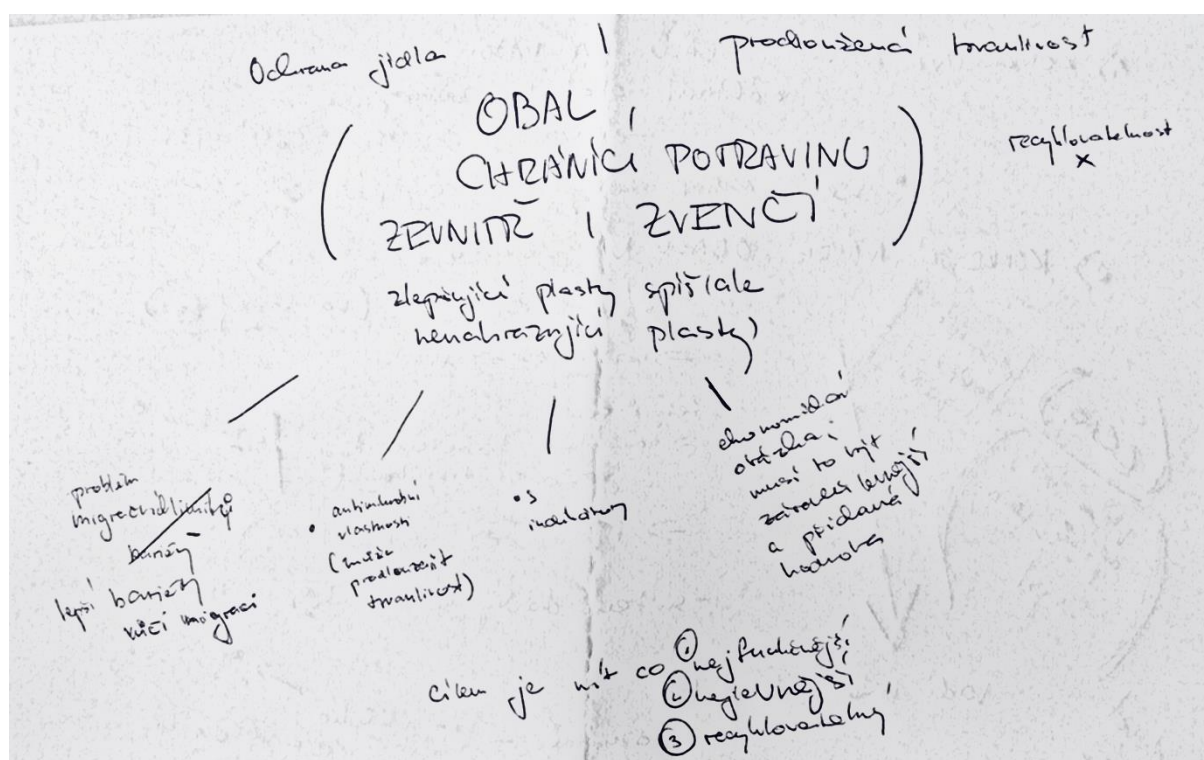 Ochrana jídla | prodloužená trvanlivost
recyklovatelnost
x
(OBAL,
CHRÁNÍCÍ POTRAVINU
ZEVNITŘ I ZVENČÍ)
zlepšující plasty spíš/ale
nenahrazující plasty)
problém
migrace
bariéry
lepší bariéry
vůči migraci
• antimikrobní
vlastnosti
(může
prodloužit
trvanlivost)
• s
indikátory
ekonomická
otázka:
musí to být
zároveň levnější
a přidaná
hodnota
cílem je mít co ① nejfunkčnější,
② nejlevnější
③ recyklovatelný